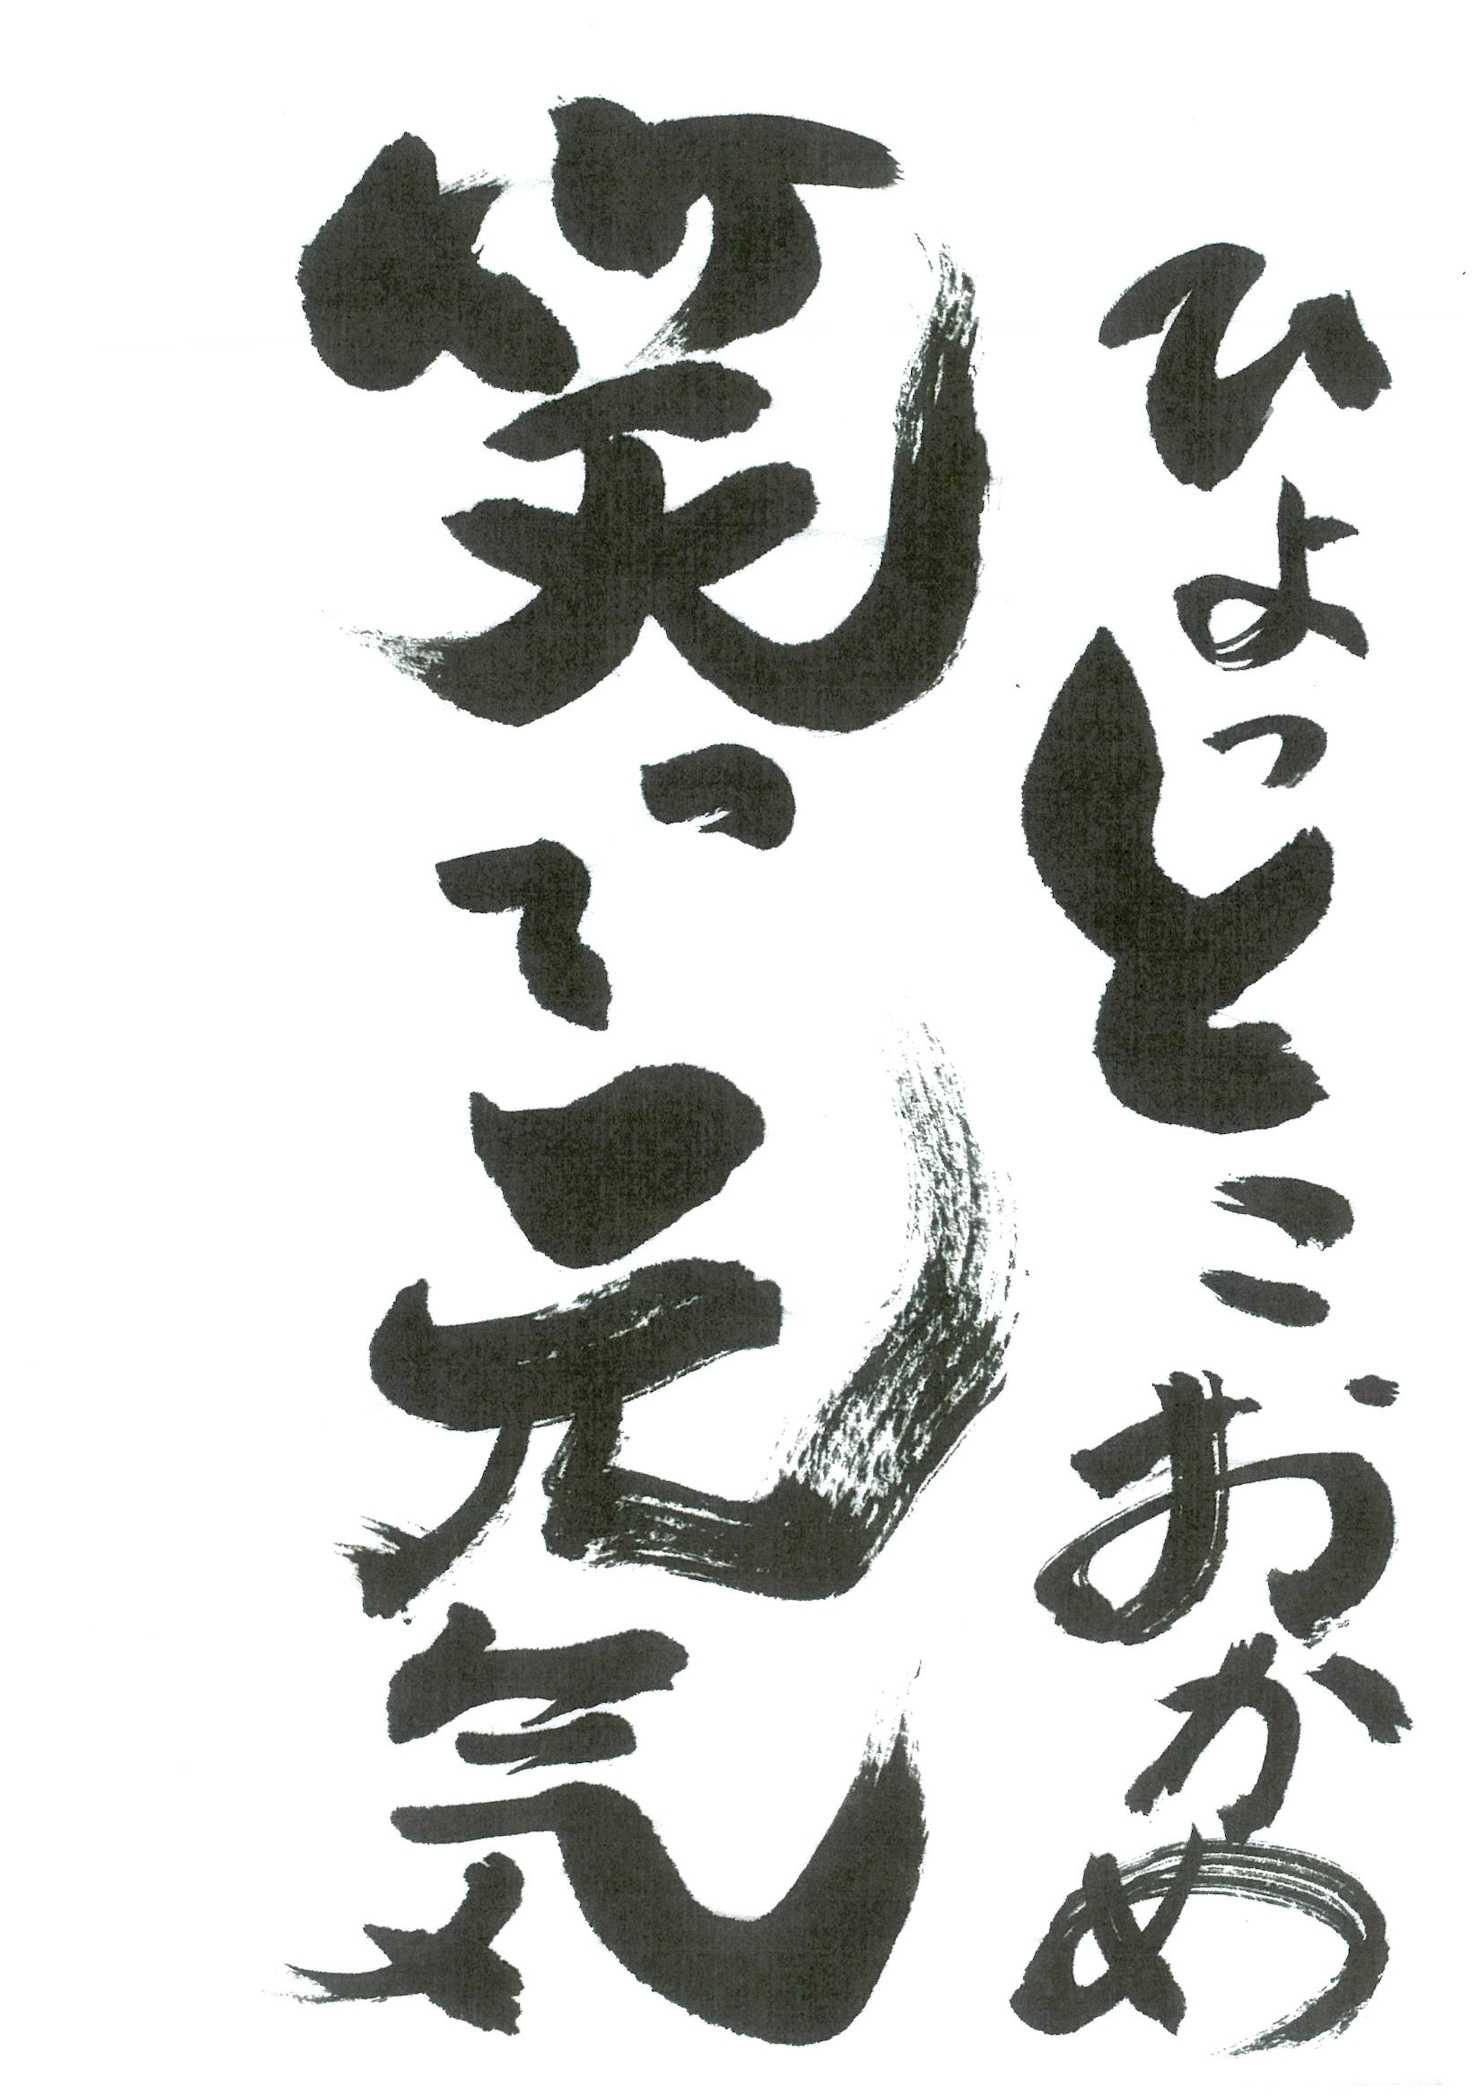 ひょっとこおかめ
笑って元気